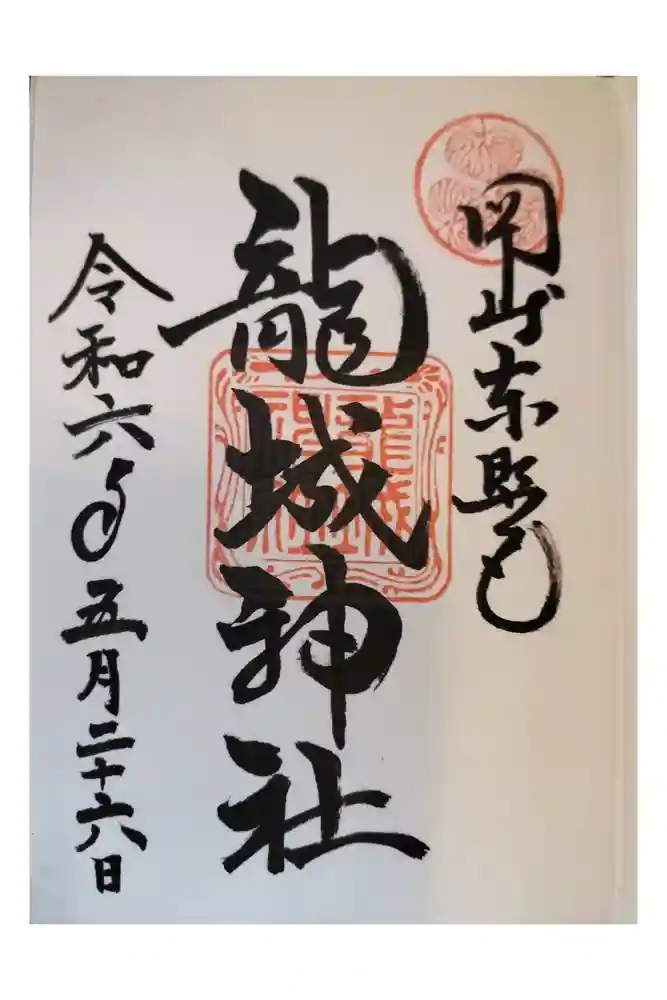 岡崎東照宮
龍城神社
令和六年五月二十六日
龍城神社